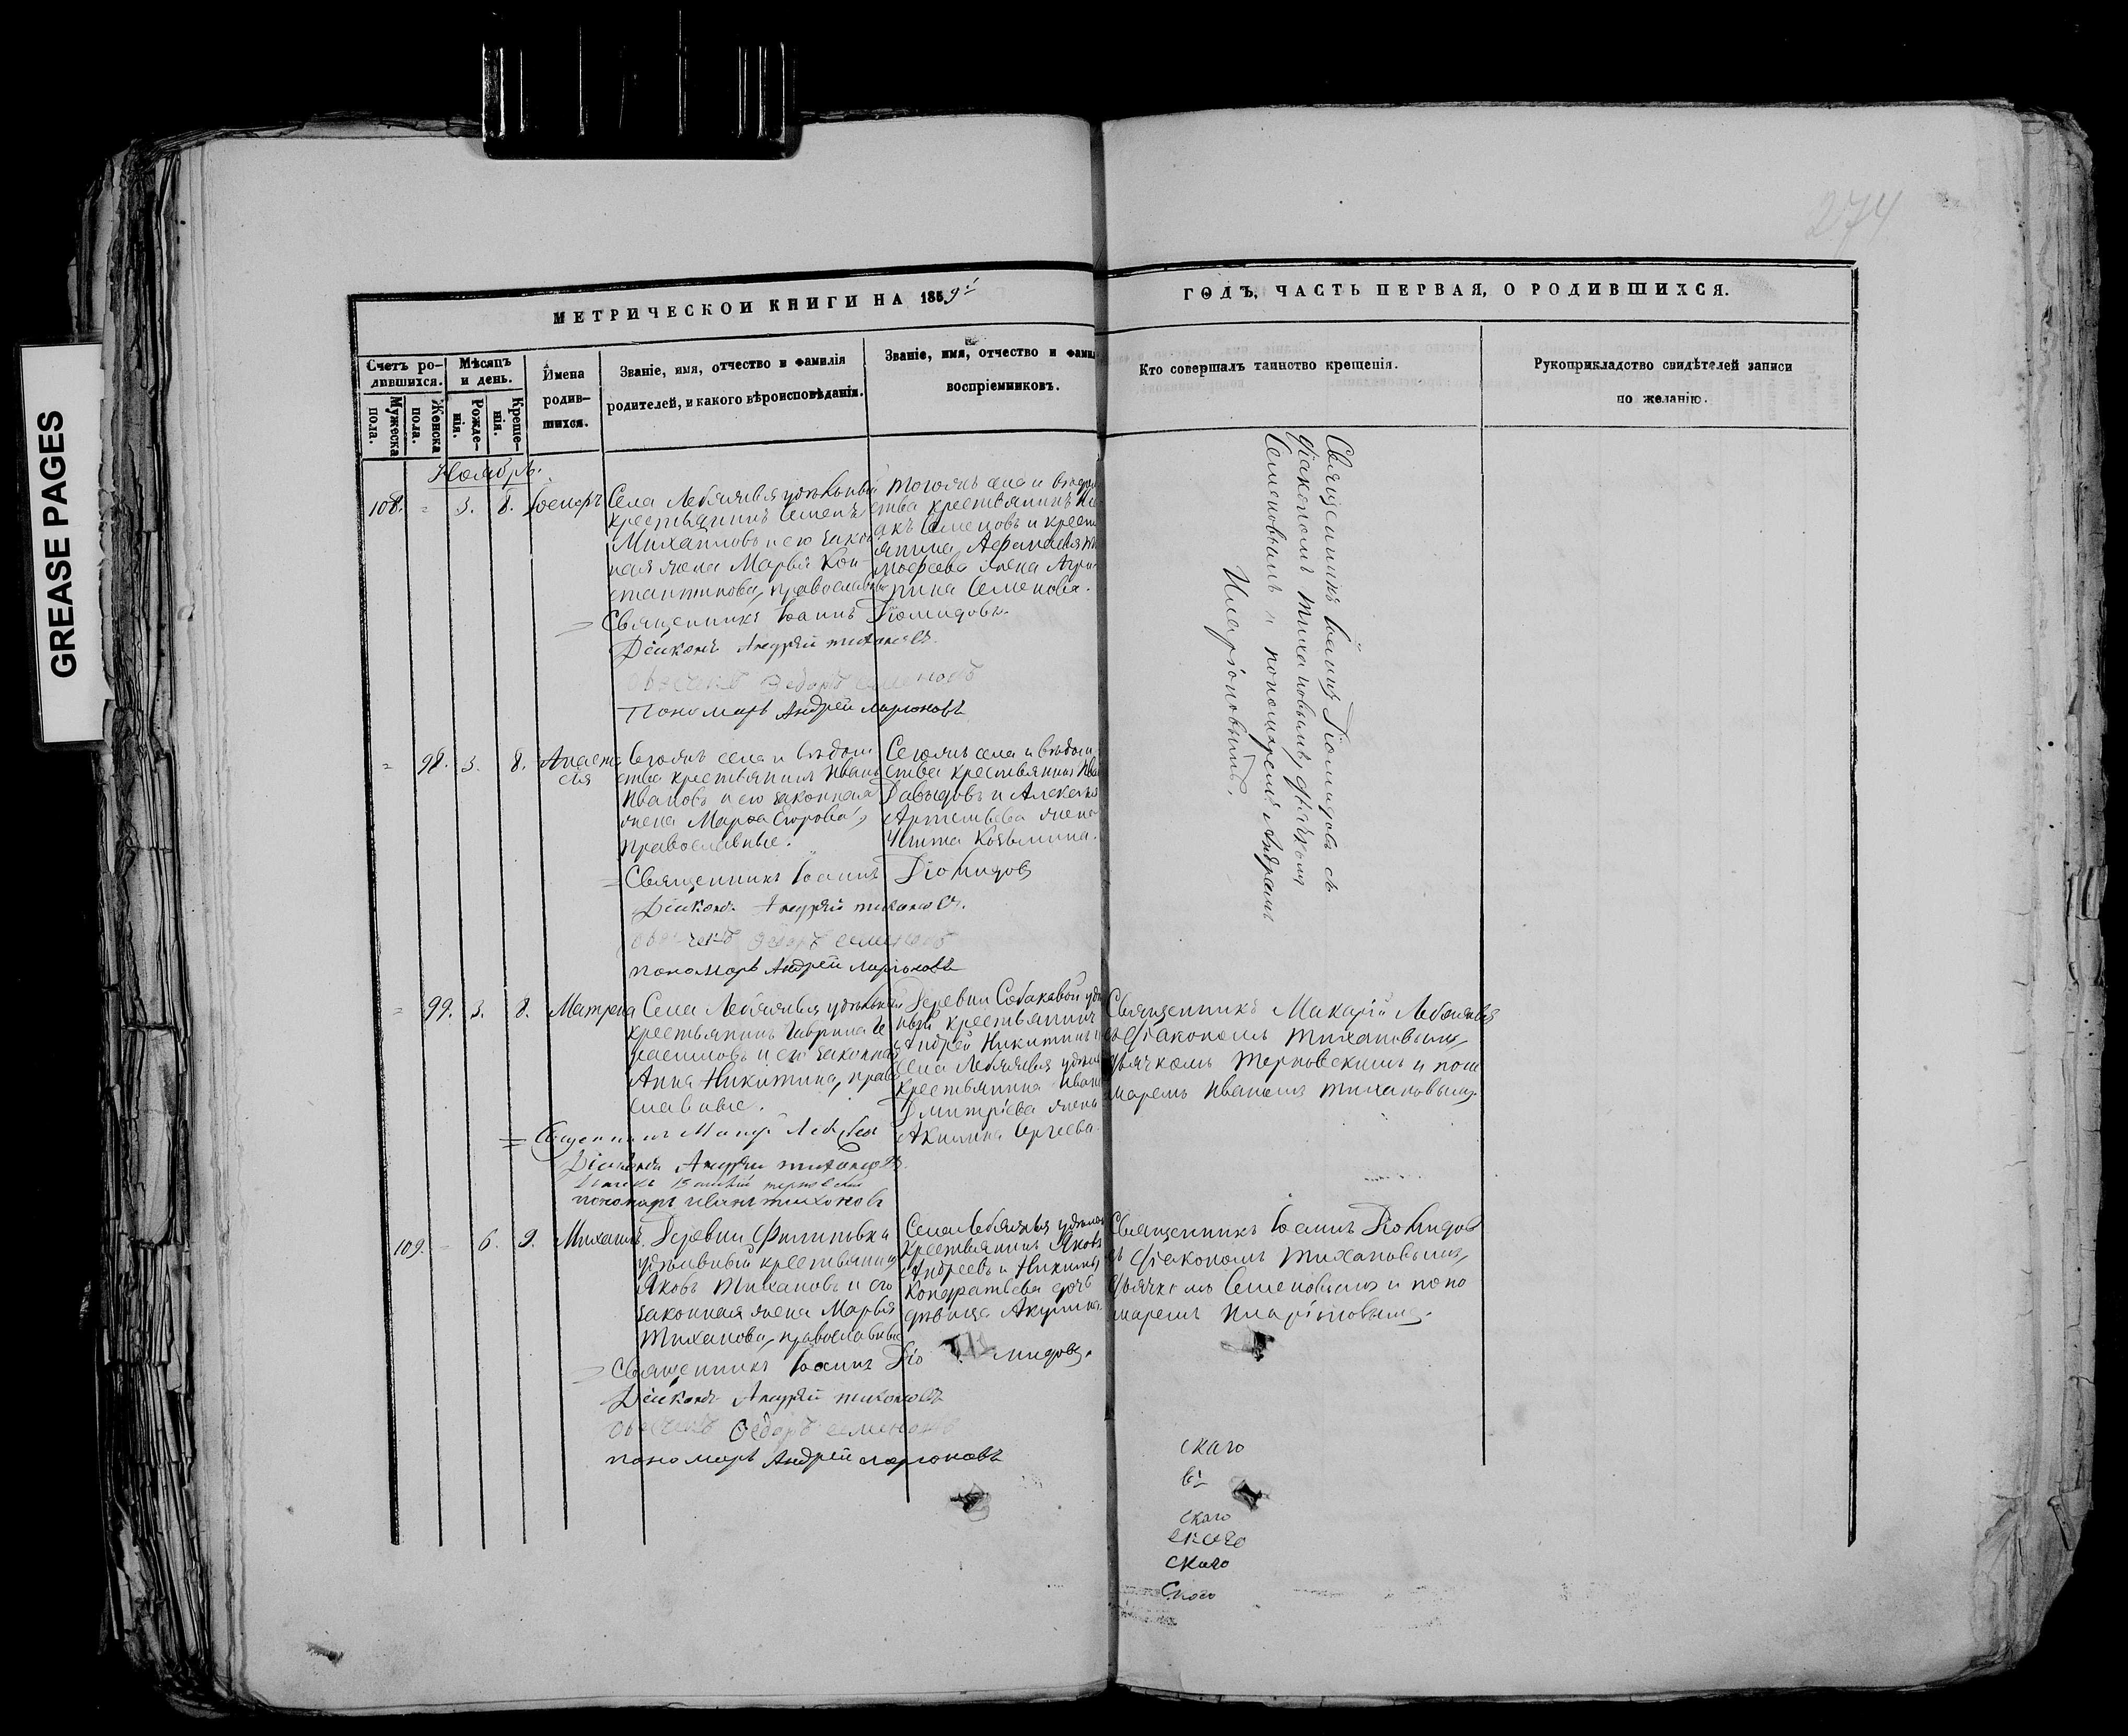 GREASE PAGES
274
МЕТРИЧЕСКОЙ КНИГИ НА 1859й
ГОДЪ, ЧАСТЬ ПЕРВАЯ, О РОДИВШИХСЯ.
Счетъ ро-
дившихся.
Мужеска
пола.
Женска
пола.
Мѣсяцъ
и день.
Рожде-
нія.
Креще-
нія.
Имена
родив-
шихся.
Званіе, имя, отчество и фамилія
родителей, и какого вѣроисповѣданія.
Званіе, имя, отчество и фами
воспріемниковъ.
Кто совершалъ таинство крещенія.
Рукоприкладство свидѣтелей записи
по желанію.
Ноябрь.
108. = 3. 8.
Села Лебяжья удѣльный
крестьянинъ Семенъ
Михайловъ и его закон
ная жена Марья Кон-
стантинова, православные
Тогожъ села и вѣдом
ства крестьянинъ
Семеновъ и крестья
янина
жена Агри
пина Семенова.
Священникъ Іоаннъ Діомидовъ.
Діаконъ Андрей Тихановъ.
Федоръ Семеновъ
Пономарь Андрей Ларионовъ
Священникъ Іоаннъ Діомидовъ съ
діакономъ Тихановымъ, дьячкомъ
Семеновымъ и пономаремъ Андреемъ
Иларіоновымъ.
= 98. 3. 8. Анаста
сія
Тогожъ села и вѣдом
ства крестьянинъ Иванъ
Ивановъ и его законная
жена Марѳа Егорова,
православные.
Сегожъ села и вѣдом
ства крестьянинъ Иван
Давыдовъ и Алексѣя
Артемьева жена
Козьмина.
Священникъ Іоаннъ Діомидовъ
Діаконъ Андрей Тихановъ.
Федоръ Семеновъ
пономарь Андрей Ларионовъ
= 99. 3. 8. Матрена
Села Лебяжья удѣльный
крестьянинъ Гаврила Ге
расимовъ и его законная
Анна Никитина, право
славные.
Деревни Собакавой удѣ
ный крестьянинъ
Андрей Никитинъ и
села Лебяжья удѣль
крестьянина Ивана
Дмитріева жена
Акилина Сергеева.
Священникъ Макарій Лебяжьев
съ діакономъ Тихановымъ,
дьячкомъ Терновскимъ и поно
маремъ Иваномъ Тихановымъ.
Діаконъ Андрей Тихановъ.
пономарь Иванъ Тихоновъ
109. = 6. 9. Михаилъ.
Деревни Филиповки
удѣльный крестьянинъ
Яковъ Тихановъ и его
законная жена Марья
Тиханова, православные
Села Лебяжья удѣльн
крестьянинъ Яковъ
Андреевъ и Никиты
Кондратьева дочь
дѣвица Акулина.
Священникъ Іоаннъ Діомидовъ
съ діакономъ Тихановымъ,
дьячкомъ Семеновымъ и поно
маремъ Иларіоновымъ.
Священникъ Іоаннъ Діомидовъ.
Діаконъ Андрей Тихановъ
Федоръ Семеновъ
пономарь Андрей Ларионовъ
скаго
скаго
скаго
скаго